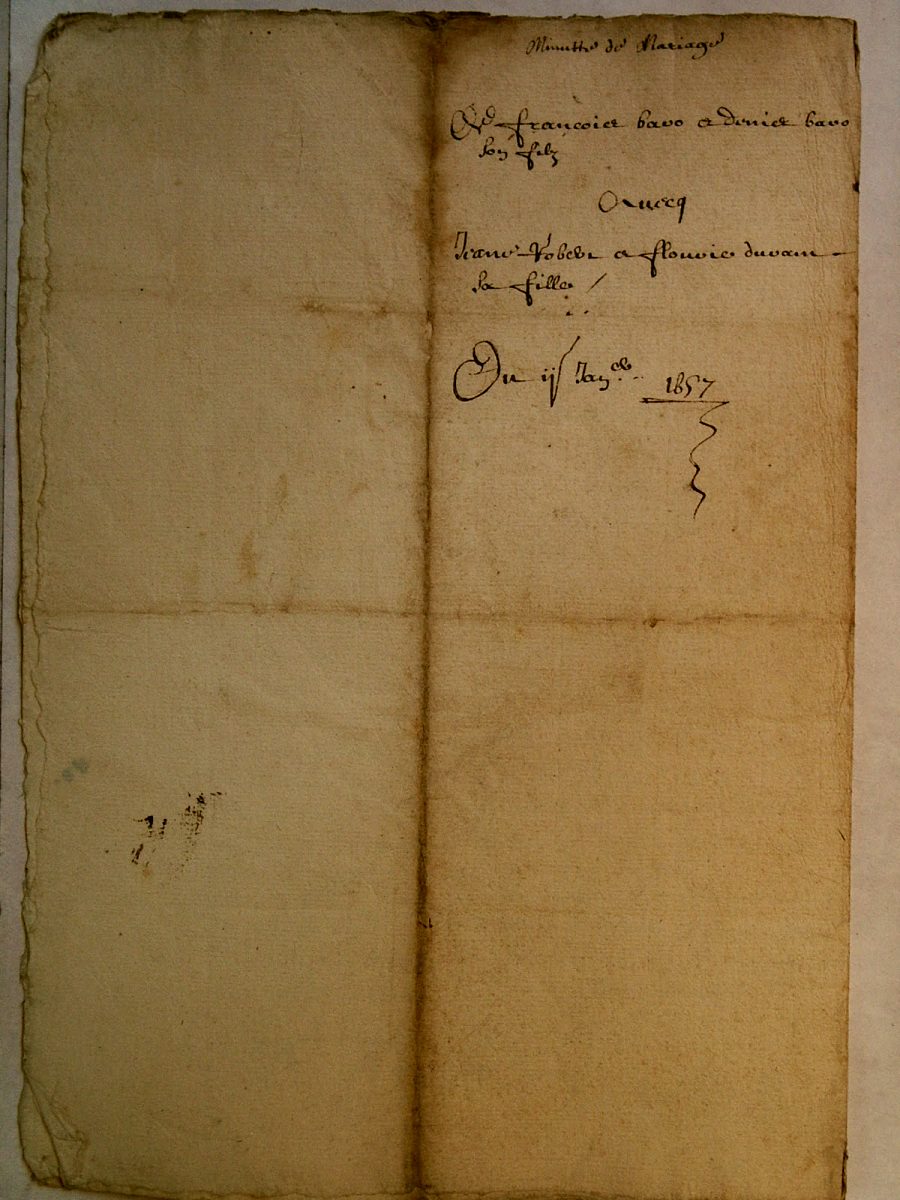 Minutte de Mariage
De francois baro et denis baro
son filz
Avecq
Jeane Robert et flourie durant
sa fille /
Du ij Janer 1657